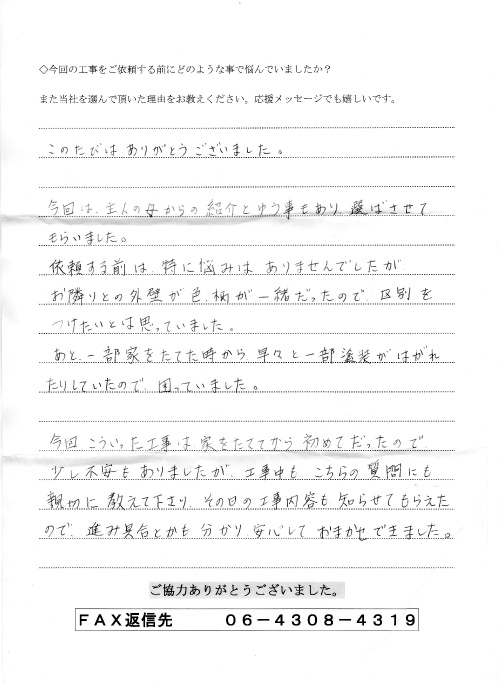 ◇今回の工事をご依頼する前にどのような事で悩んでいましたか？
また当社を選んで頂いた理由をお教えください。応援メッセージでも嬉しいです。
このたびは ありがとうございました。
今回は、主人の母からの紹介とゆう事もあり 選ばさせて
もらいました。
依頼する前は、特に悩みは ありませんでしたが
お隣りとの外壁が色、柄が一緒だったので、区別を
つけたいとは思っていました。
あと、一部家をたてた時から 早々と一部塗装がはがれ
たりしていたので、困っていました。
今回 こういった工事は 家をたててから 初めてだったので
少し不安も ありましたが、工事中も こちらの 質問にも
親切に 教えて下さり、その日の工事内容も 知らせてもらえた
ので、進み具合とかも 分かり 安心して おまかせできました。
ご協力ありがとうございました。
ＦＡＸ返信先　　０６－４３０８－４３１９